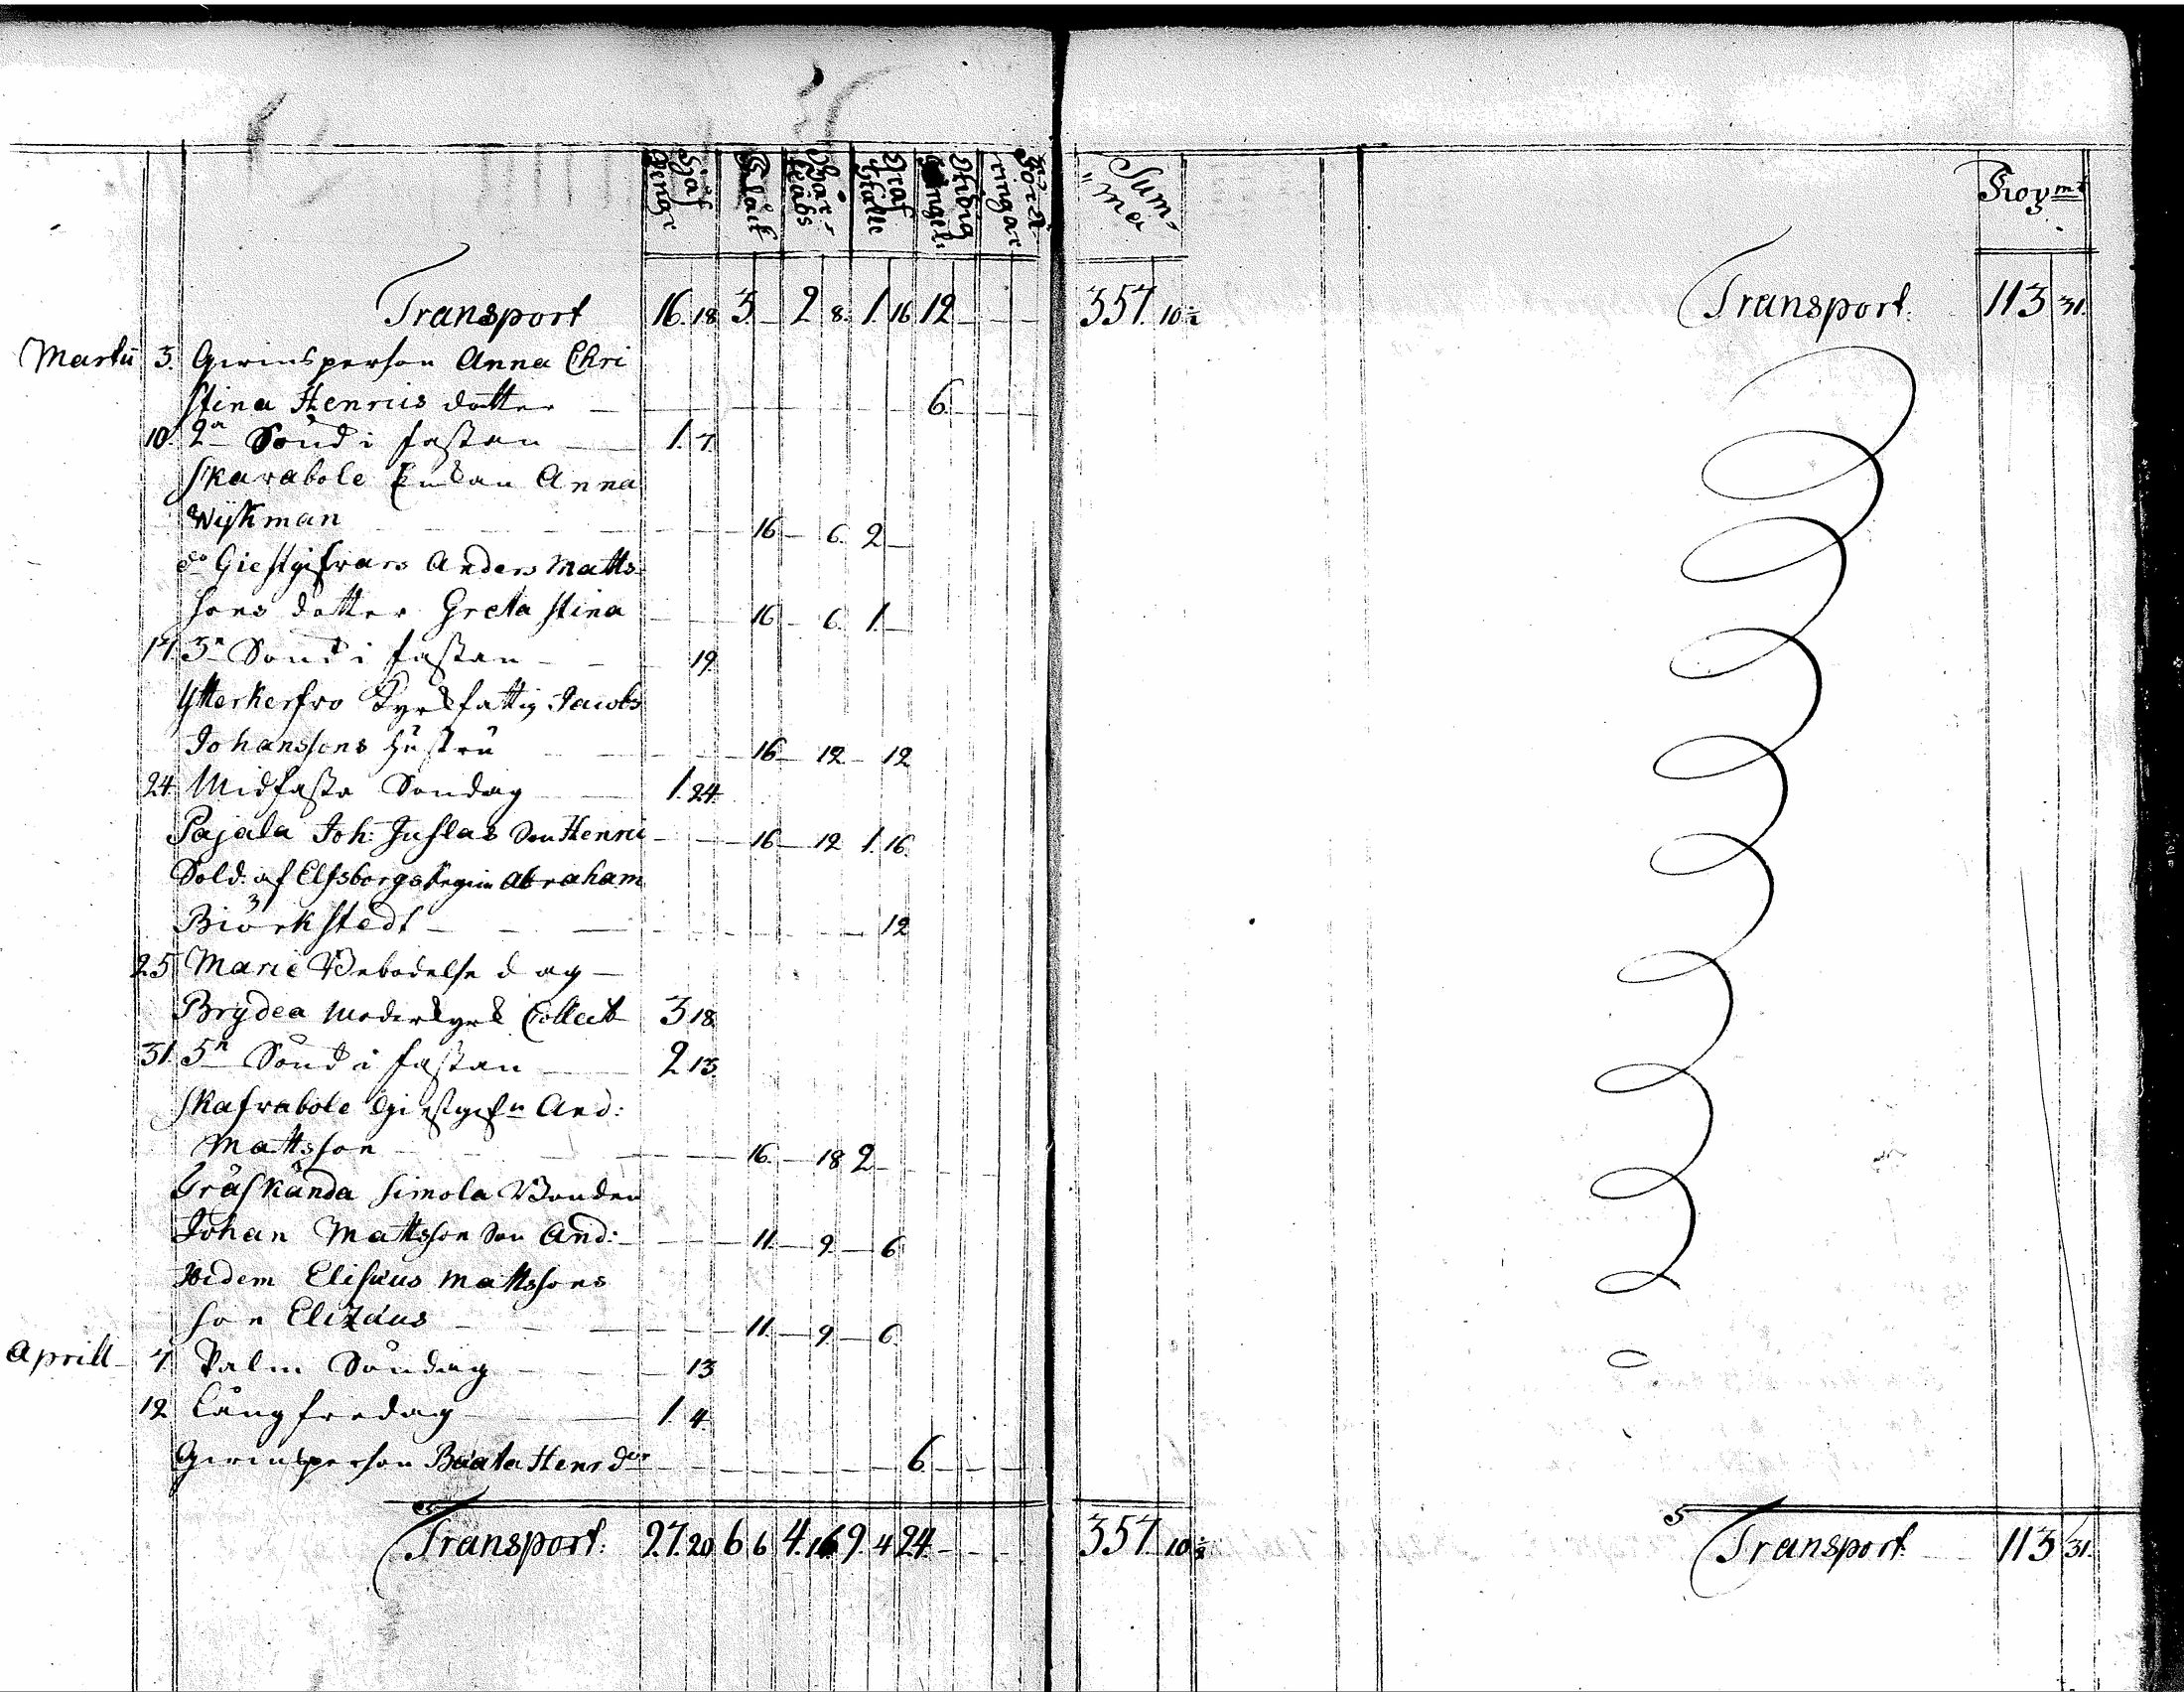 Håf Pengr
Bårkläds
Graf Ställe
Summa
Proy mt
Transport 16. 18. 3. — 2 8. 1. 16 12 — — —
357. 10 ½
Transport. 113 31.
Martii 3. Qvinsperson Anna Chri
stina Henrics dotter — 6.
10. 2a Sönd i fastan — 1. 7.
Skarabole Enkan Anna
Wijkman — 16 — 6. 2 —
do Giestgifvars Anders Matts
sons dotter Greta Stina — 16 — 6. 1. —
17. 3n Sönd i fastan — 19.
Ytterkerfro Kyrkfattig Jacobs
Johanssons hustru — 16 — 12 — 12
24. Midfasto Söndag — 1. 24.
Pajala Joh: Gustas Son Henric — 16 — 12 1. 16.
Sold. af Elfsborgs Regim Abraham
Biörkstedt — 12
25 Mariæ Bebodelse dag —
Brydea Moderkyrk Collect 3 18.
31. 5n Sönd i fastan — 2 13.
Skafrabole Giestgifn And:
Mattsson — 16. — 18 2 —
Träskända Simola Bonden
Johan Mattsson Son And: — 11. — 9 — 6
Ibidem Elisæus Mattssons
son Elizæus — 11. — 9 — 6.
Aprill — 7. Palm Söndag — 13
12 Långfredag — 1. 4.
Qvinsperson Beata Henrs dr — 6.
Transport: 27. 20 6 6 4. 16 9. 4 24. — — —
357. 10 ½
Transport 113 31.